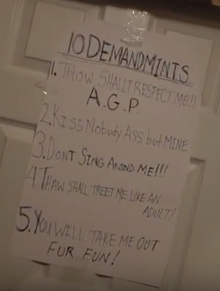 10 DEMANDMINTS
1. THOW SHALLT RESPECT ME!!
A.G.P.
2. KISS NoBuDY ASS buT MINE
3. DONT SING AROND ME!!!
4. THAW SHALL TREET ME LIKE AN
ADULT!
5. YOU WILL TAKE ME OUT
FUR FUN!